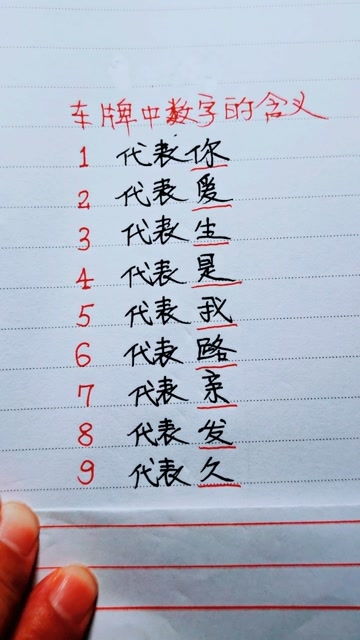 车牌中数字的含义
1 代表你
2 代表爱
3 代表生
4 代表是
5 代表我
6 代表路
7 代表亲
8 代表发
9 代表久